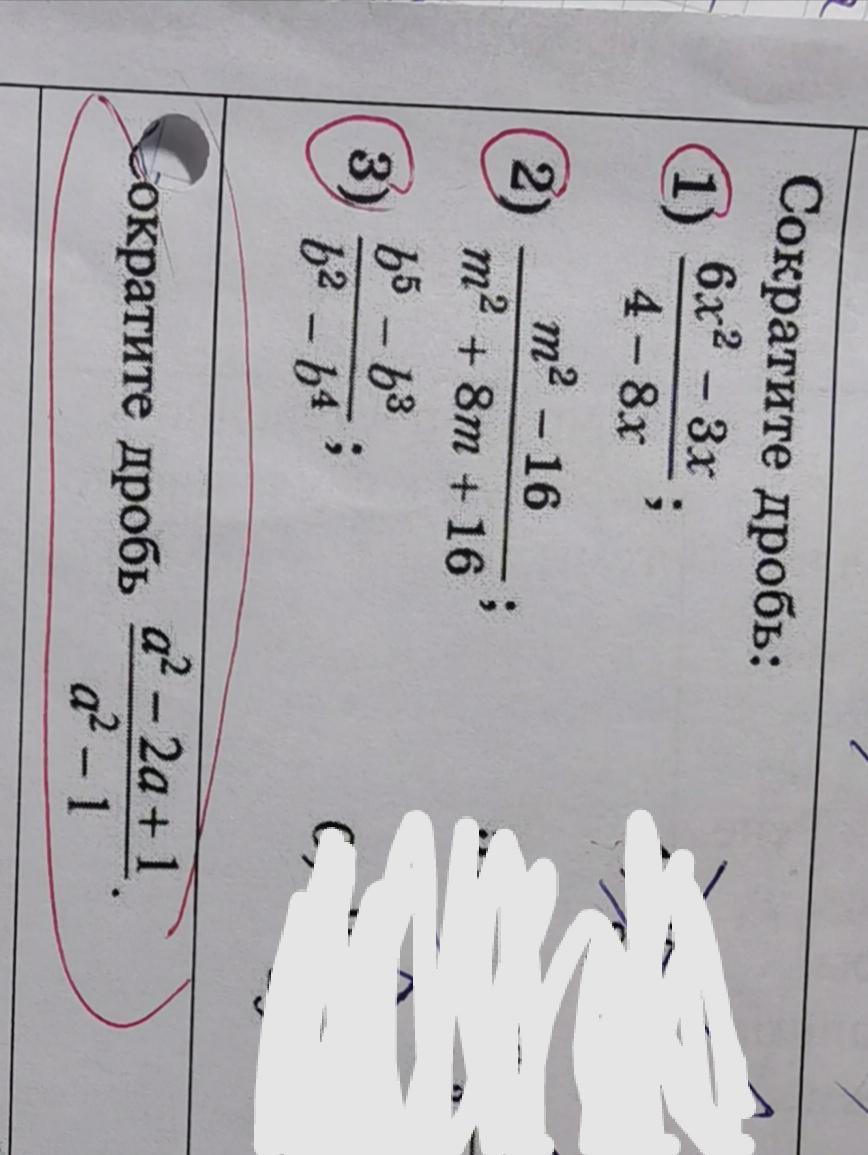 Сократите дробь:
1) \frac{6x^2 - 3x}{4 - 8x};
2) \frac{m^2 - 16}{m^2 + 8m + 16};
3) \frac{b^5 - b^3}{b^2 - b^4};
Сократите дробь \frac{a^2 - 2a + 1}{a^2 - 1}.